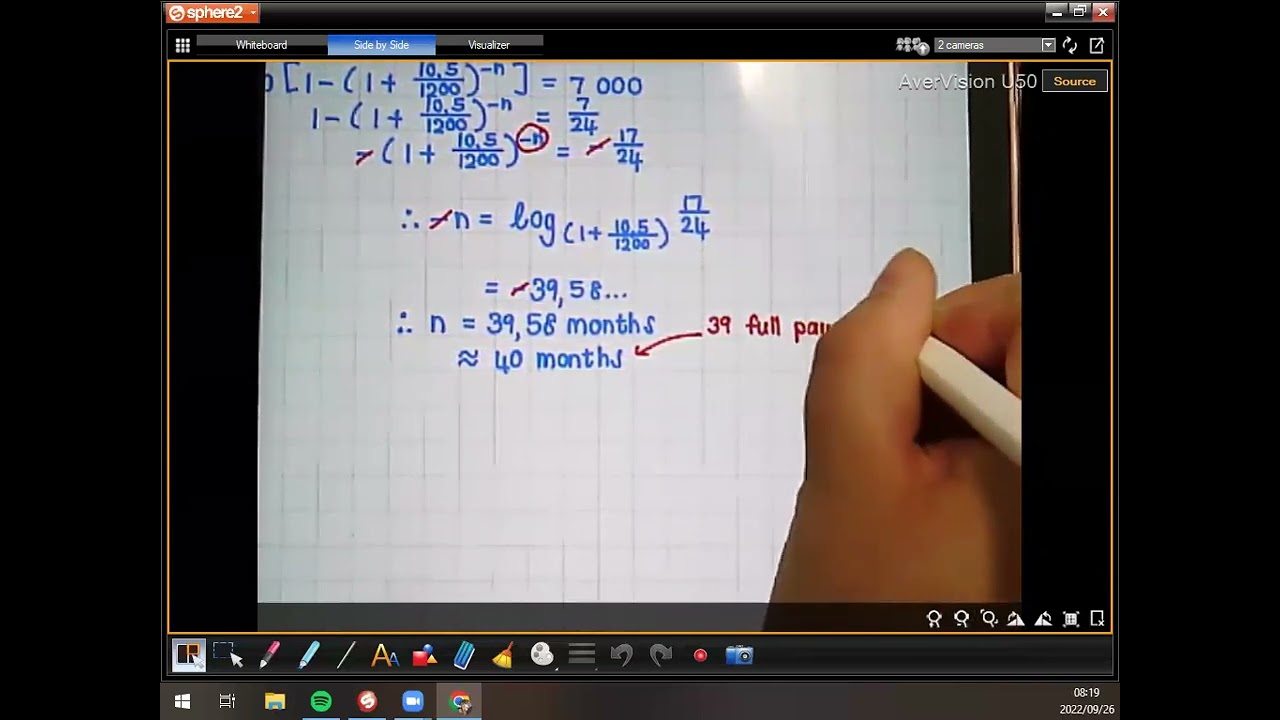 sphere2
Whiteboard
Side by Side
Visualizer
2 cameras
AverVision U50
Source
[1-(1+10,5/1200)^-n] = 7 000
1-(1+10,5/1200)^-n = 7/24
-(1+10,5/1200)^-n = -17/24
∴ -n = log_(1+10,5/1200) 17/24
= -39,58...
∴ n = 39,58 months
39 full
≈ 40 months
08:19
2022/09/26